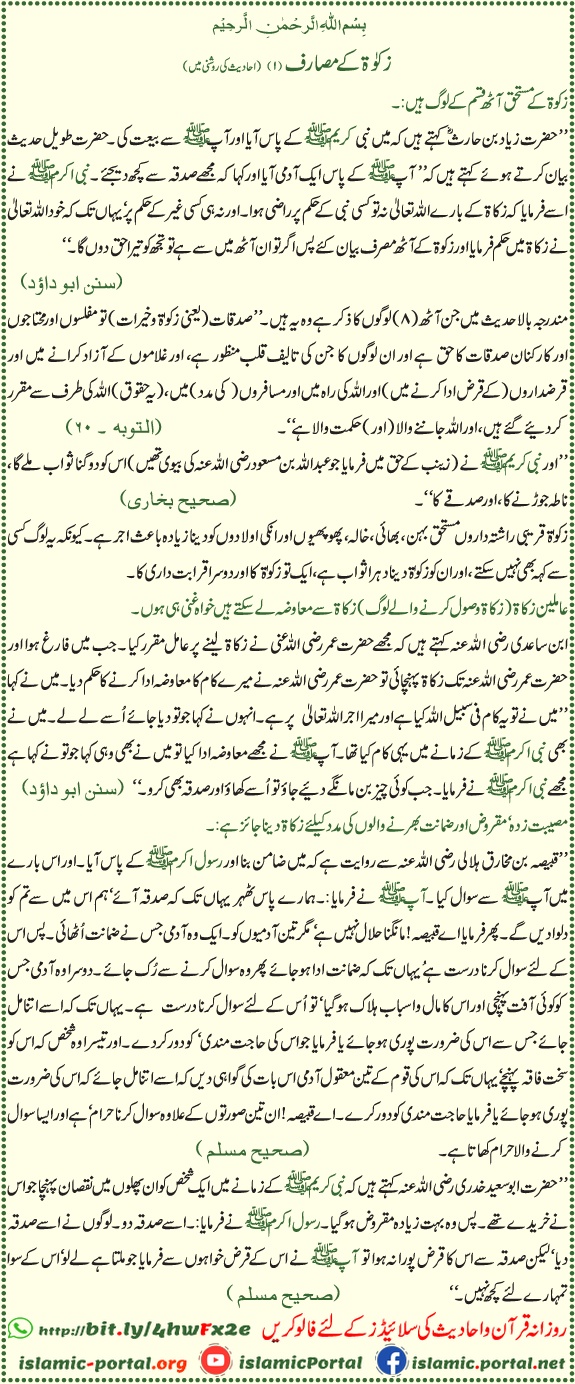 بِسْمِ اللهِ الرَّحْمٰنِ الرَّحِيْمِ
زکوٰۃ کے مصارف (۱) (احادیث کی روشنی میں)
زکوٰۃ کے مستحق آٹھ قسم کے لوگ ہیں:۔
’’حضرت زیاد بن حارثؓ کہتے ہیں کہ میں نبی کریم ﷺ کے پاس آیا اور آپ ﷺ سے بیعت کی۔ حضرت طویل حدیث
بیان کرتے ہوئے کہتے ہیں کہ ’’آپ ﷺ کے پاس ایک آدمی آیا اور کہا کہ مجھے صدقہ سے کچھ دیجئے۔ نبی اکرم ﷺ نے
اسے فرمایا کہ زکاۃ کے بارے اللہ تعالیٰ نہ تو کسی نبی کے حکم پر راضی ہوا۔ اور نہ ہی کسی غیر کے حکم پر‘ یہاں تک کہ خود اللہ تعالیٰ
نے زکاۃ میں حکم فرمایا اور زکوۃ کے آٹھ مصرف بیان کئے پس اگر تو ان آٹھ میں سے ہے تو تجھ کو تیرا حق دوں گا۔‘‘
(سنن ابو داؤد)
مندرجہ بالا حدیث میں جن آٹھ (۸) لوگوں کا ذکر ہے وہ یہ ہیں۔ ’’صدقات (یعنی زکوٰۃ وخیرات) تو مفلسوں اور محتاجوں
اور کارکنان صدقات کا حق ہے اور ان لوگوں کا جن کی تالیف قلب منظور ہے، اور غلاموں کے آزاد کرانے میں اور
قرضداروں (کے قرض ادا کرنے میں) اور اللہ کی راہ میں اور مسافروں (کی مدد) میں، (یہ حقوق) اللہ کی طرف سے مقرر
کر دیئے گئے ہیں، اور اللہ جاننے والا (اور) حکمت والا ہے‘‘۔ (التوبہ ۔ ۶۰)
’’اور نبی کریم ﷺ نے (زینب کے حق میں فرمایا جو عبداللہ بن مسعود رضی اللہ عنہ کی بیوی تھیں) اس کو دوگنا ثواب ملے گا،
ناطہ جوڑنے کا، اور صدقے کا‘‘۔ (صحیح بخاری)
زکوٰۃ قریبی راشتہ داروں مستحق بہن، بھائی، خالہ، پھوپھیوں اور انکی اولادوں کو دینا زیادہ باعث اجر ہے۔ کیونکہ یہ لوگ کسی
سے کہہ بھی نہیں سکتے، اور ان کو زکوٰۃ دینا دہرا ثواب ہے، ایک تو زکوٰۃ کا اور دوسرا قرابت داری کا۔
عاملین زکاۃ (زکاۃ وصول کرنے والے لوگ) زکاۃ سے معاوضہ لے سکتے ہیں خواہ غنی ہی ہوں۔
ابن ساعدی رضی اللہ عنہ کہتے ہیں کہ مجھے حضرت عمر رضی اللہ عنی نے زکاۃ لینے پر عامل مقرر کیا۔ جب میں فارغ ہوا اور
حضرت عمر رضی اللہ عنہ تک زکاۃ پہنچائی تو حضرت عمر رضی اللہ عنہ نے میرے کام کا معاوضہ ادا کرنے کا حکم دیا۔ میں نے کہا
’’میں نے تو یہ کام فی سبیل اللہ کیا ہے اور میرا اجر اللہ تعالیٰ پر ہے۔ انہوں نے کہا جو تو دیا جائے اُسے لے لے۔ میں نے
بھی نبی اکرم ﷺ کے زمانے میں یہی کام کیا تھا۔ آپ ﷺ نے مجھے معاوضہ ادا کیا تو میں نے بھی وہی کہا جو تو نے کہا ہے
مجھے نبی اکرم ﷺ نے فرمایا۔ جب کوئی چیز بن مانگے دیئے جاؤ تو اُسے کھاؤ اور صدقہ بھی کرو۔‘‘ (سنن ابو داؤد)
مصیبت زدہ‘ مقروض اور ضمانت بھرنے والوں کی مدد کیلئے زکاۃ دینا جائز ہے:۔
’’قبیصہ بن مخارق ہلالی رضی اللہ عنہ سے روایت ہے کہ میں ضامن بنا اور رسول اکرم ﷺ کے پاس آیا۔ اور اس بارے
میں آپ ﷺ سے سوال کیا۔ آپ ﷺ نے فرمایا:۔ ہمارے پاس ٹھہر یہاں تک کہ صدقہ آئے‘ ہم اس میں سے تم کو
دلوا دیں گے۔ پھر فرمایا اے قبیصہ! مانگنا حلال نہیں ہے‘ مگر تین آدمیوں کو۔ ایک وہ آدمی جس نے ضمانت اُٹھائی۔ پس اس
کے لئے سوال کرنا درست ہے‘ یہاں تک کہ ضمانت ادا ہو جائے پھر وہ سوال کرنے سے رُک جائے۔ دوسرا وہ آدمی جس
کو کوئی آفت پہنچی اور اس کا مال واسباب ہلاک ہو گیا‘ تو اُس کے لئے سوال کرنا درست ہے۔ یہاں تک کہ اسے اتنا مل
جائے جس سے اس کی ضرورت پوری ہو جائے یا فرمایا جو اس کی حاجت مندی‘ کو دور کر دے۔ اور تیسرا وہ شخص کہ اس کو
سخت فاقہ پہنچے‘ یہاں تک کہ اس کی قوم کے تین معقول آدمی اس بات کی گواہی دیں کہ اسے اتنا مل جائے کہ اس کی ضرورت
پوری ہو جائے یا فرمایا حاجت مندی کو دور کرے۔ اے قبیصہ! ان تین صورتوں کے علاوہ سوال کرنا حرام‘ ہے اور ایسا سوال
کرنے والا حرام کھاتا ہے۔ (صحیح مسلم)
’’حضرت ابو سعید خدری رضی اللہ عنہ کہتے ہیں کہ نبی کریم ﷺ کے زمانے میں ایک شخص کو ان پھلوں میں نقصان پہنچا جو اس
نے خریدے تھے۔ پس وہ بہت زیادہ مقروض ہو گیا۔ رسول اکرم ﷺ نے فرمایا:۔ اسے صدقہ دو۔ لوگوں نے اسے صدقہ
دیا‘ لیکن صدقہ سے اس کا قرض پورا نہ ہوا تو آپ ﷺ نے اس کے قرض خواہوں سے فرمایا جو ملتا ہے لے لو‘ اس کے سوا
تمہارے لئے کچھ نہیں۔‘‘ (صحیح مسلم)
روزانہ قرآن واحادیث کی سلائیڈز کے لئے فالو کریں http://bit.ly/4hwFx2e
islamic-portal.org islamicPortal islamic.portal.net